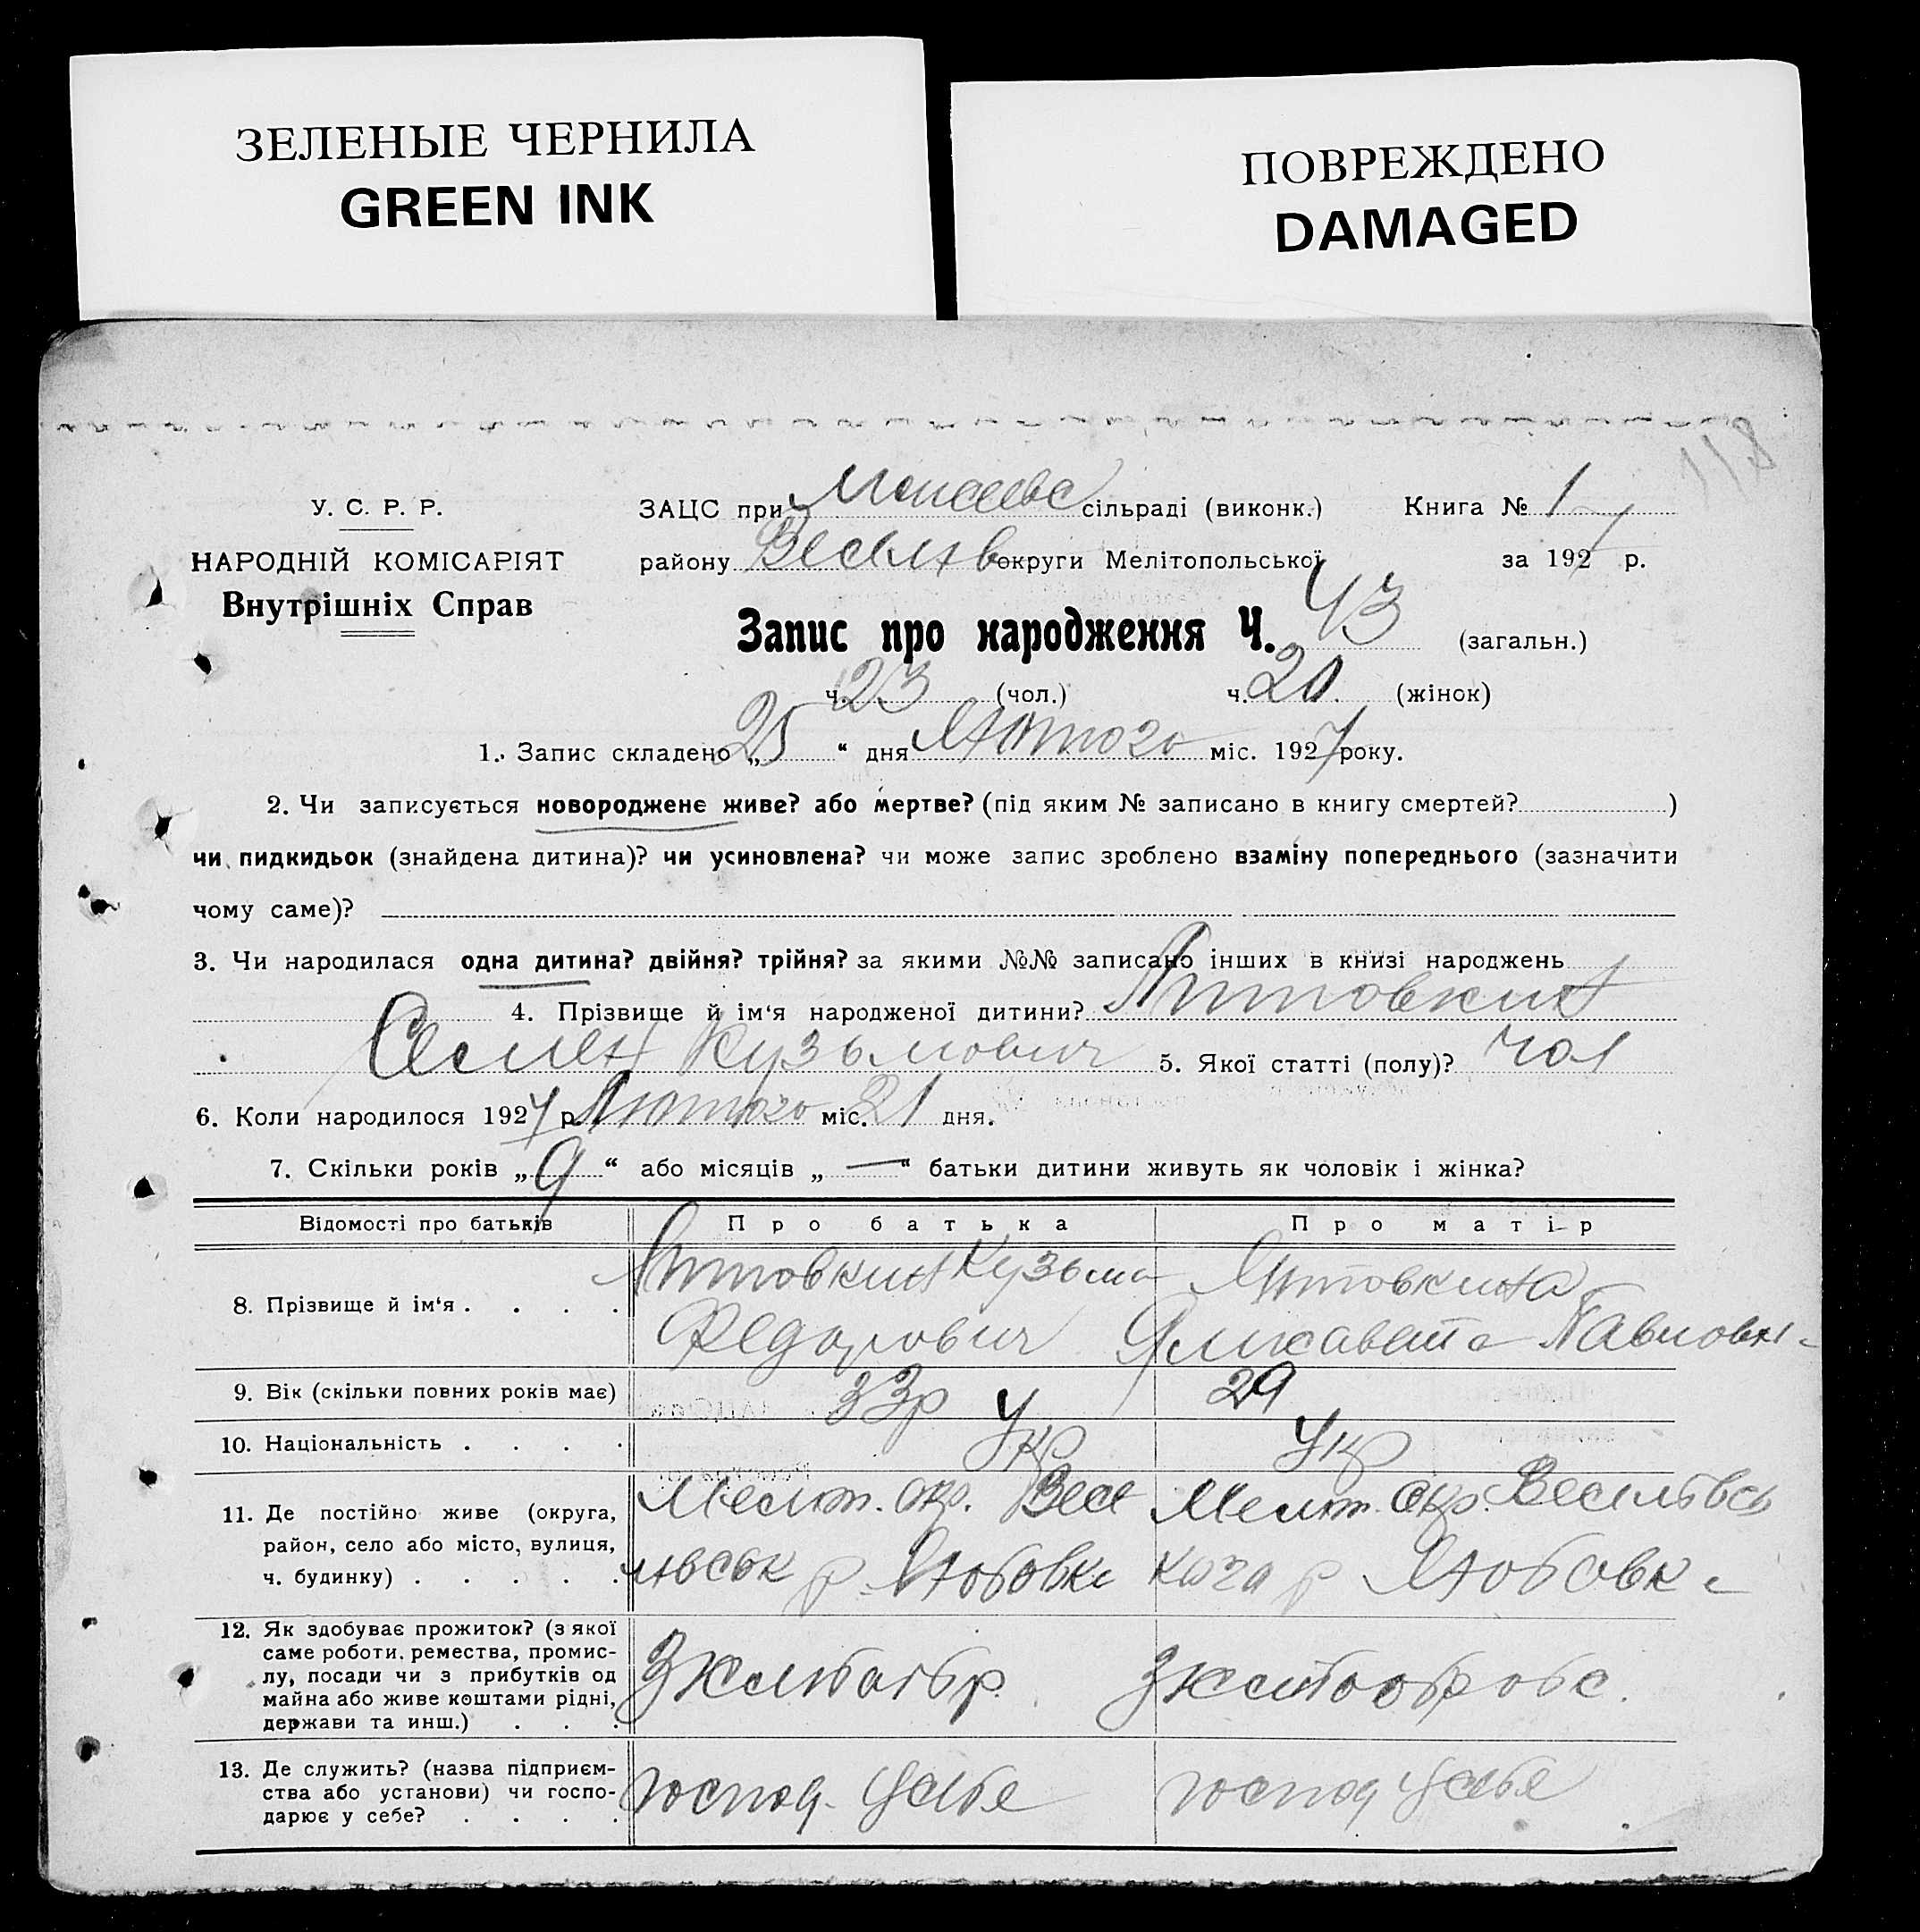 ЗЕЛЕНЫЕ ЧЕРНИЛА
GREEN INK
ПОВРЕЖДЕНО
DAMAGED
У. С. Р. Р.
НАРОДНІЙ КОМІСАРІЯТ
Внутрішніх Справ
ЗАЦС при Моисеевс сільраді (виконк.) Книга № 1
району Веселів округи Мелітопольської за 1927 р.
Запис про народження Ч. 43 (загальн.)
ч. 23 (чол.) ч. 20 (жінок)
1. Запис складено „25“ дня Лютого міс. 1927 року.
2. Чи записується новороджене живе? або мертве? (під яким № записано в книгу смертей? )
чи пидкидьок (знайдена дитина)? чи усиновлена? чи може запис зроблено взаміну попереднього (зазначити
чому саме)?
3. Чи народилася одна дитина? двійня? трійня? за якими №№ записано інших в книзі народжень
4. Прізвище й ім‘я народженої дитини?
Семен Кузьмович 5. Якої статті (полу)? чол
6. Коли народилося 1927 р. Лютого міс. 21 дня.
7. Скільки років „9“ або місяців „—“ батьки дитини живуть як чоловік і жінка?
Відомості про батьків Про батька Про матір
8. Прізвище й ім‘я . . . .
Кузьма
Федорович
Павловн
9. Вік (скільки повних років має) 33р 29
10. Національність . . . . Укр Укр
11. Де постійно живе (округа,
район, село або місто, вулиця,
ч. будинку) . . . . .
Мелит. окр. Весе
лівськ р. Любовка
Мелит. окр. Веселівсь
кого р Любовка
12. Як здобуває прожиток? (з якої
саме роботи, ремества, промис-
лу, посади чи з прибутків од
майна або живе коштами рідні,
держави та инш.) . . .
13. Де служить? (назва підприєм-
ства або установи) чи госпо-
дарює у себе? . . . .
господ. у себе
господ у себе